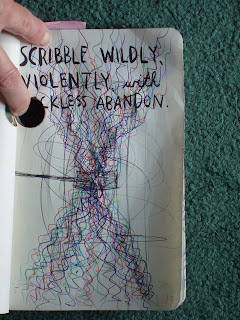 SCRIBBLE WILDLY,
VIOLENTLY, with
CKLESS ABANDON.